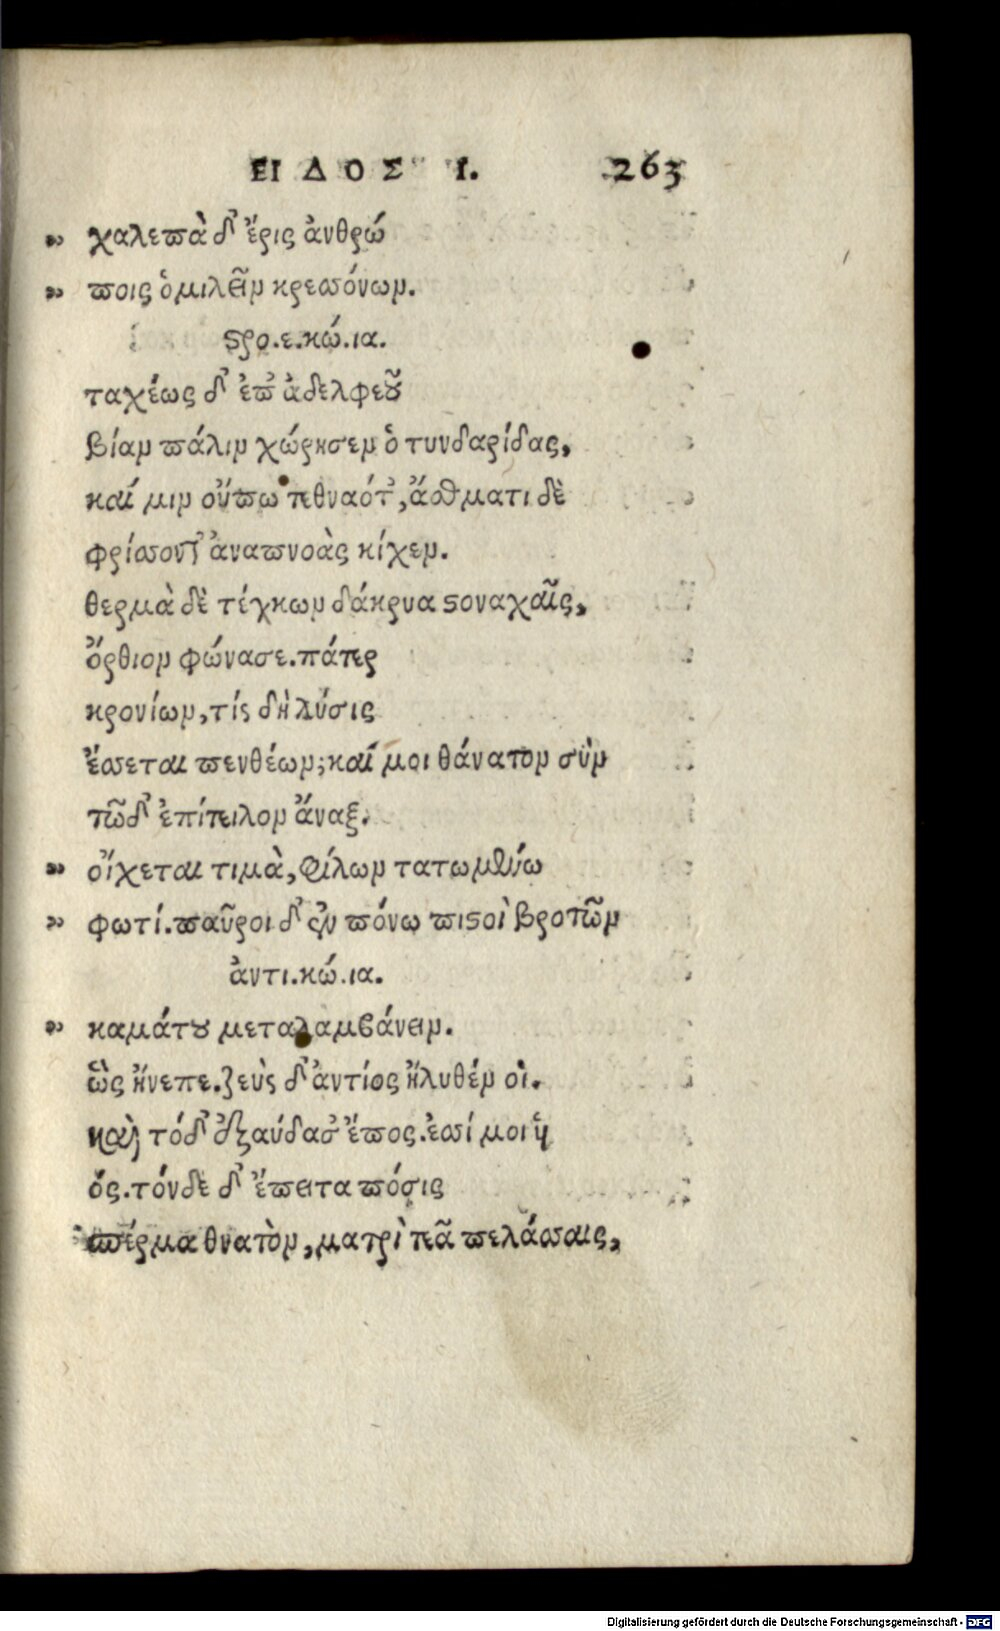 ΕΙΔΟΣ Ι. 263
” χαλεπὰ δ' ἔρις ἀνθρώ
” ποις ὁμιλεῖν κρεσσόνων.
στρο.ε.κώ.ια.
ταχέως δ' ἐπ' ἀδελφεοῦ
βίαν πάλιν χώρησεν ὁ τυνδαρίδας,
καί μιν οὔπω τεθναότ', ἄσθματι δὲ
φρίσσοντ' ἀναπνοὰς κίχεν.
θερμὰ δὲ τέγγων δάκρυα στοναχαῖς,
ὄρθιον φώνασε.πάτερ
κρονίων,τίς δὴ λύσις
ἔσσεται πενθέων;καί μοι θάνατον σὺν
τῷδ' ἐπίτειλον ἄναξ.
” οἴχεται τιμὰ, φίλων τατωμένω
” φωτί.παῦροι δ' ἐν πόνω πιστοὶ βροτῶν
ἀντι.κώ.ια.
” καμάτου μεταλαμβάνειν.
ὣς ἤνεπε.ζεὺς δ' ἀντίος ἤλυθέν οἱ.
καὶ τόδ' ἐξαύδασ' ἔπος.ἐσσί μοι ὑ
ός.τόνδε δ' ἔπειτα πόσις
σπέρμα θνατὸν,ματρὶ τεᾶ πελάσσαις,
Digitalisierung gefördert durch die Deutsche Forschungsgemeinschaft - DFG